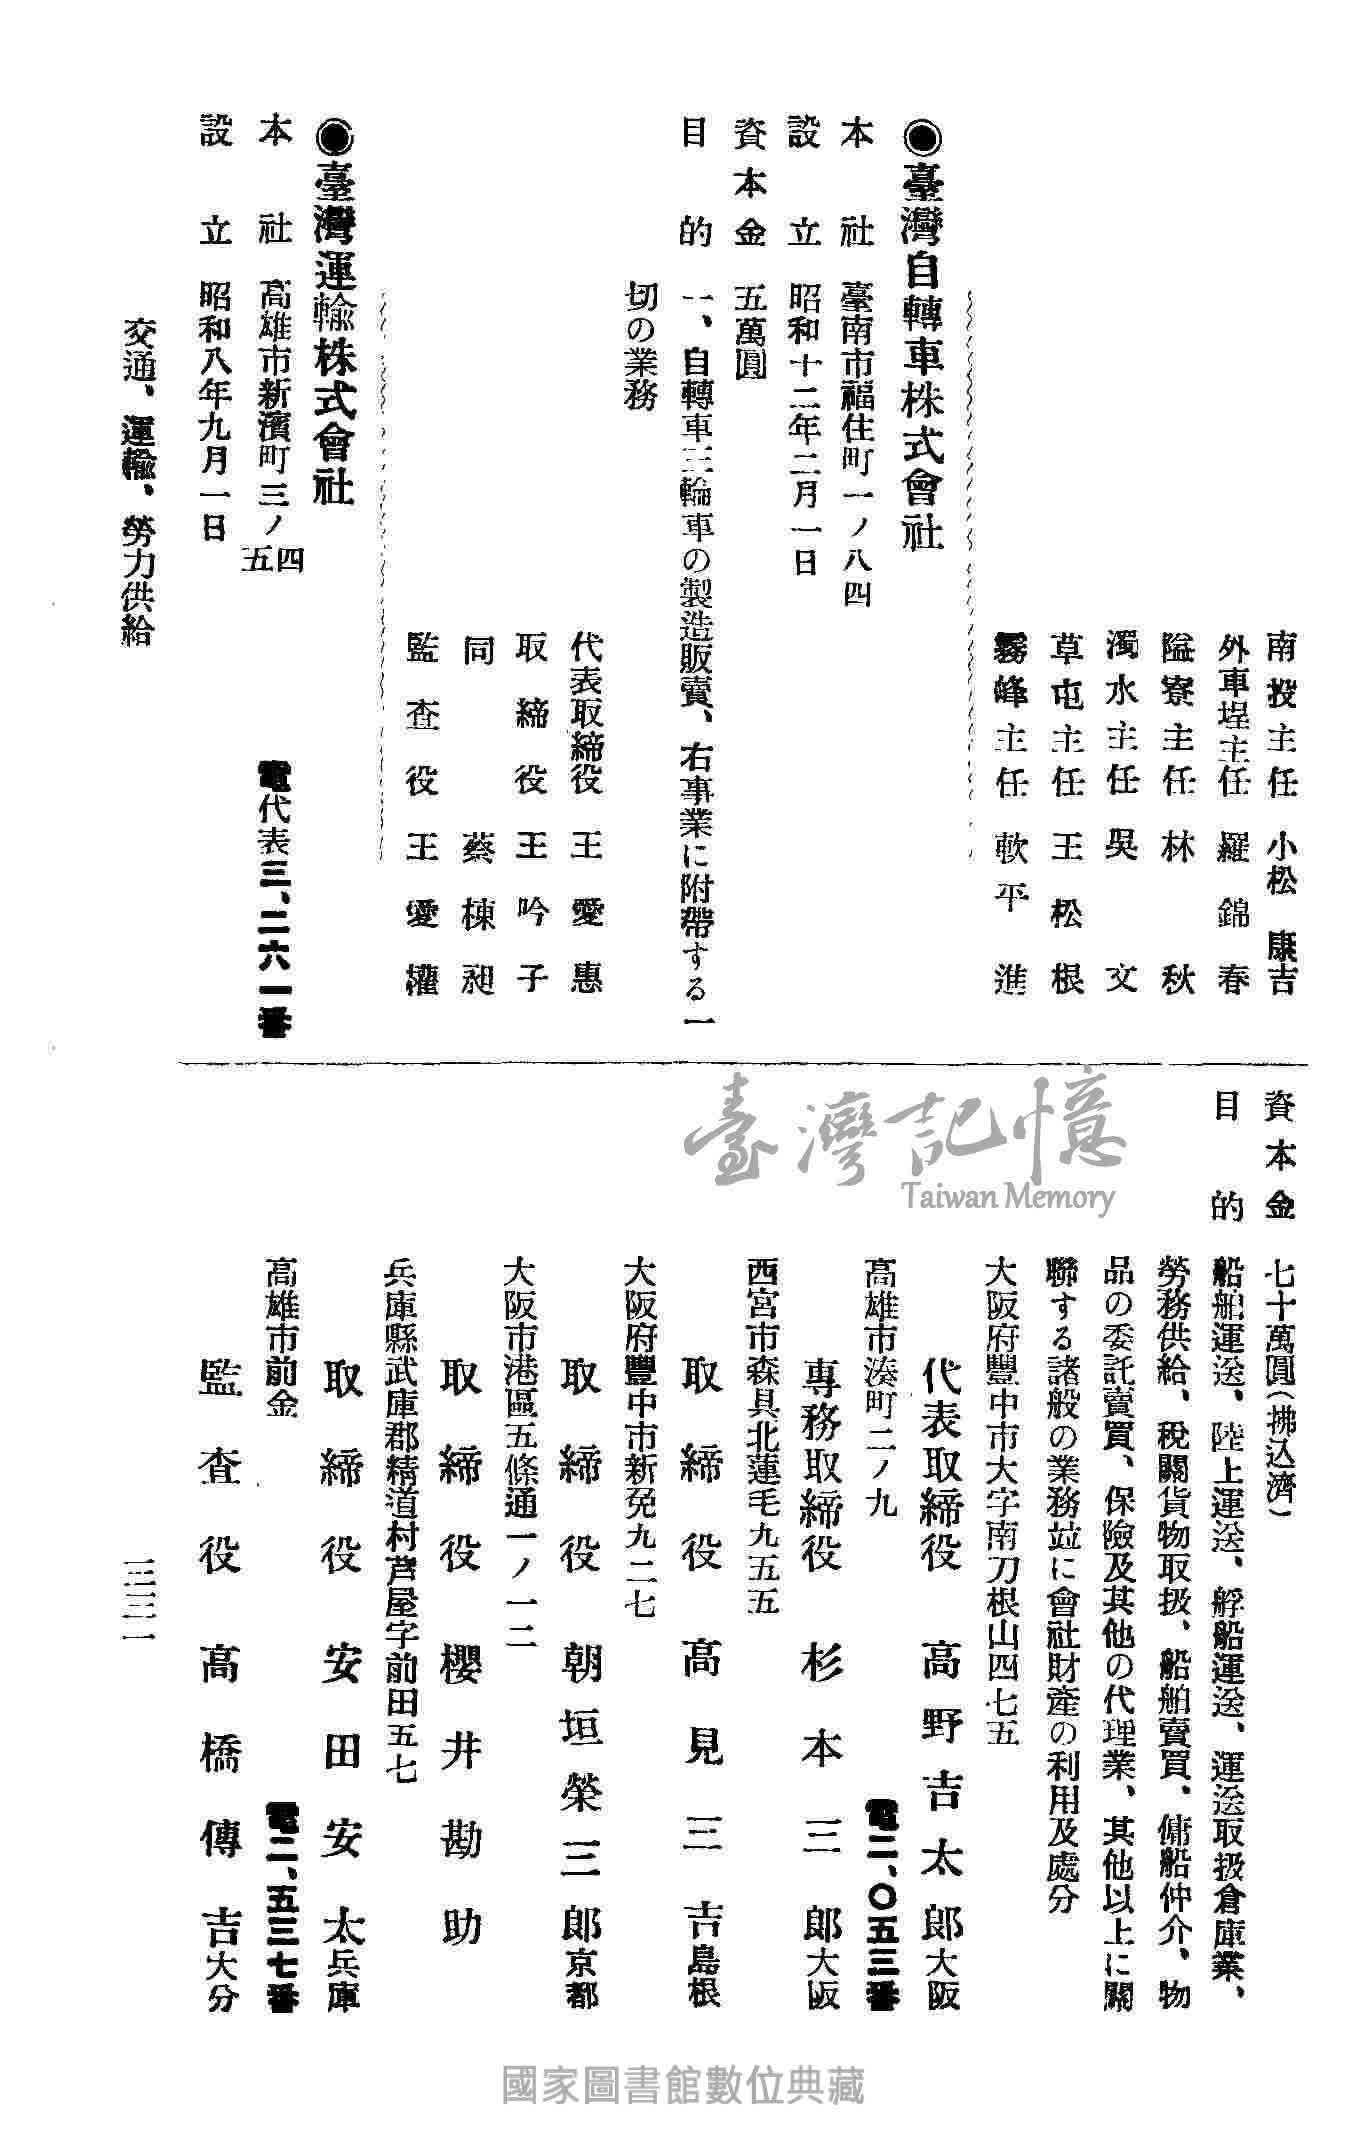 南投主任 小松康吉
外車埕主任 羅錦春
隘寮主任 林秋
濁水主任 吳文
草屯主任 王松根
霧峰主任 軟平進
◉臺灣自轉車株式會社
本社 臺南市福住町一ノ八四
設立 昭和十二年二月一日
資本金 五萬圓
目的 一、自轉車三輪車の製造販賣、右事業に附帶する一
切の業務
代表取締役 王愛惠
取締役 王吟子
同 蔡棟昶
監查役 王愛權
◉臺灣運輸株式會社
本社 高雄市新濱町三ノ四五
電代表三、二六一番
設立 昭和八年九月一日
資本金 七十萬圓(拂込濟)
目的 船舶運送、陸上運送、艀船運送、運送取扱倉庫業、
勞務供給、稅關貨物取扱、船舶賣買、傭船仲介、物
品の委託賣買、保險及其他の代理業、其他以上に關
聯する諸般の業務竝に會社財產の利用及處分
大阪府豐中市大字南刀根山四七五
代表取締役 高野吉太郎 大阪
高雄市湊町二ノ九 電二、〇五三番
專務取締役 杉本三郎 大阪
西宮市森具北蓮毛九五五
取締役 高見三吉 島根
大阪府豐中市新免九二七
取締役 朝垣榮三郎 京都
大阪市港區五條通一ノ一二
取締役 櫻井勘助
兵庫縣武庫郡精道村芦屋字前田五七
取締役 安田安太 兵庫
高雄市前金 電二、五三七番
監查役 高橋傳吉 大分
交通、運輸、勞力供給
三三一
臺灣記憶
Taiwan Memory
國家圖書館數位典藏